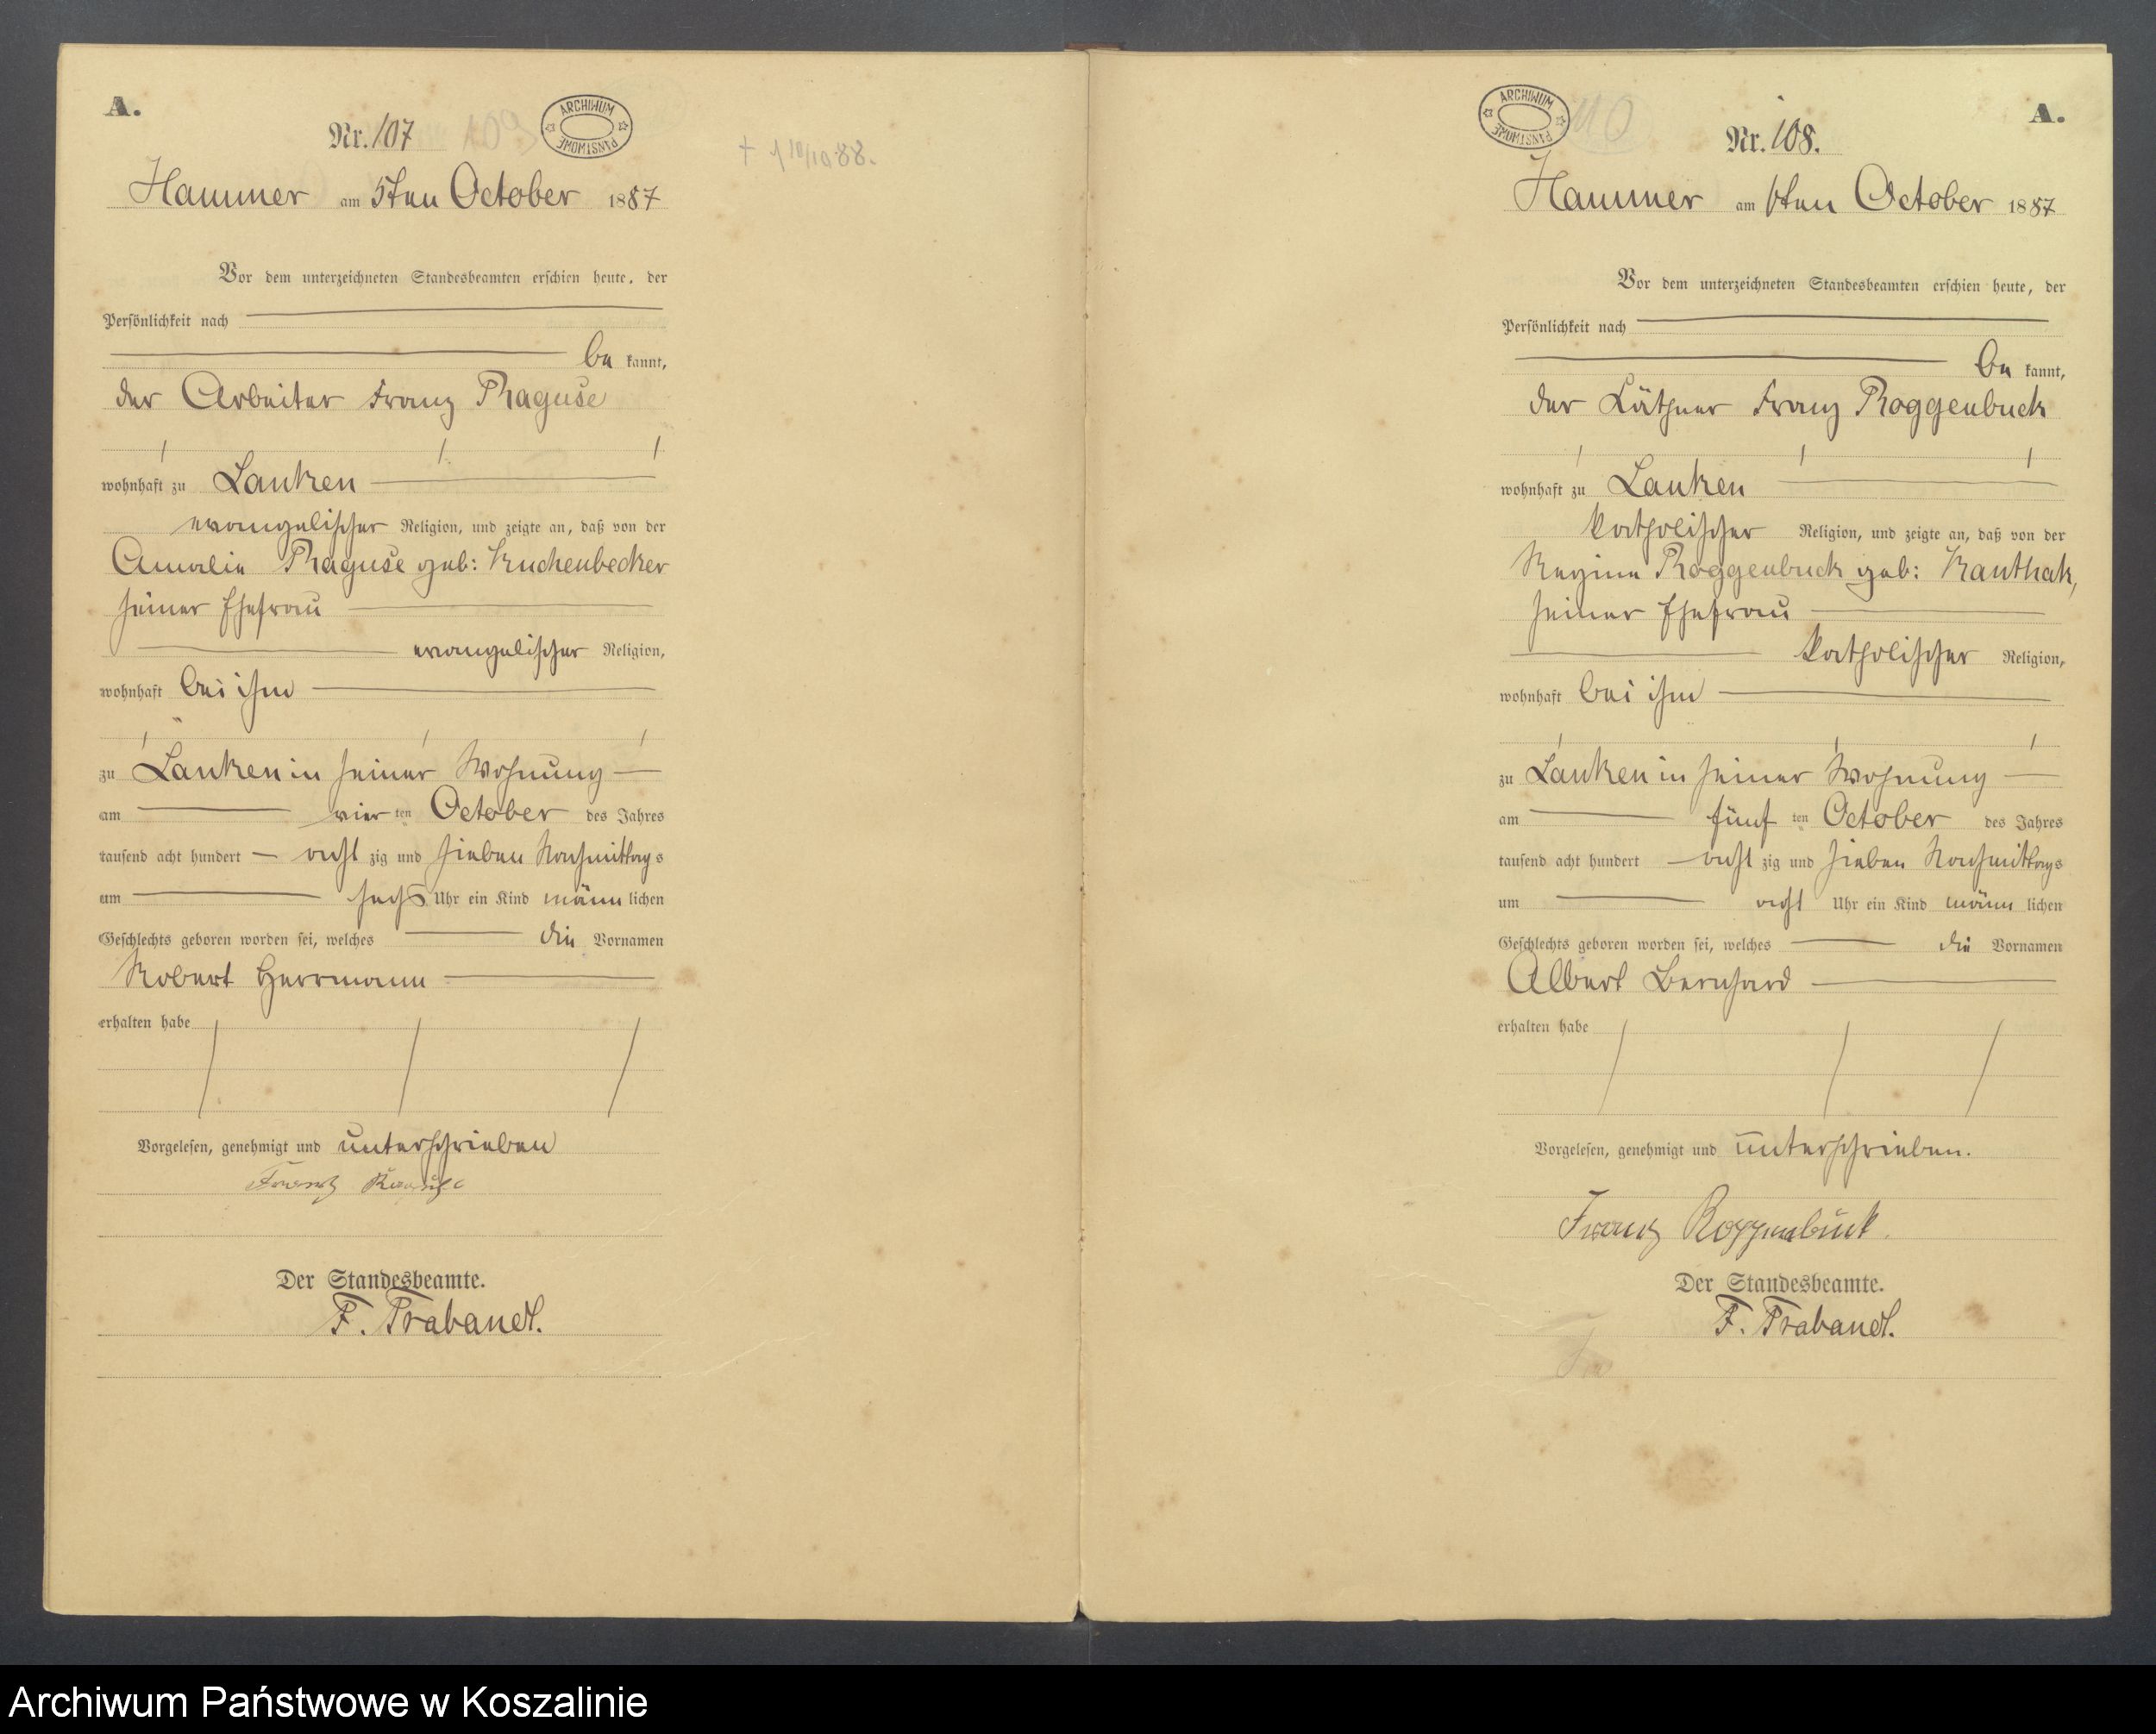 A.
Nr. 107
109
ARCHIWUM PAŃSTWOWE
† 10/10 88.
Hammer am 5ten October 1887
Vor dem unterzeichneten Standesbeamten erschien heute, der
Persönlichkeit nach
be kannt,
der Arbeiter Franz Raguse
wohnhaft zu Lanken
evangelischer Religion, und zeigte an, daß von der
Amalie Raguse geb: Kuchenbecker
seiner Ehefrau
evangelischer Religion,
wohnhaft bei ihm
zu Lanken in seiner Wohnung
am vier ten October des Jahres
tausend acht hundert acht zig und sieben Nachmittags
um sechs Uhr ein Kind männ lichen
Geschlechts geboren worden sei, welches die Vornamen
Robert Herrmann
erhalten habe
Vorgelesen, genehmigt und unterschrieben
Frantz Raguse
Der Standesbeamte.
F. Trabandt.
ARCHIWUM PAŃSTWOWE
110
A.
Nr. 108.
Hammer am 6ten October 1887
Vor dem unterzeichneten Standesbeamten erschien heute, der
Persönlichkeit nach
be kannt,
der Käthner Franz Roggenbuck
wohnhaft zu Lanken
katholischer Religion, und zeigte an, daß von der
Regine Roggenbuck geb: Kanthak,
seiner Ehefrau
katholischer Religion,
wohnhaft bei ihm
zu Lanken in seiner Wohnung
am fünf ten October des Jahres
tausend acht hundert acht zig und sieben Nachmittags
um acht Uhr ein Kind männ lichen
Geschlechts geboren worden sei, welches die Vornamen
Albert Bernhard
erhalten habe
Vorgelesen, genehmigt und unterschrieben.
Franz Roggenbuck.
Der Standesbeamte.
F. Trabandt.
Archiwum Państwowe w Koszalinie